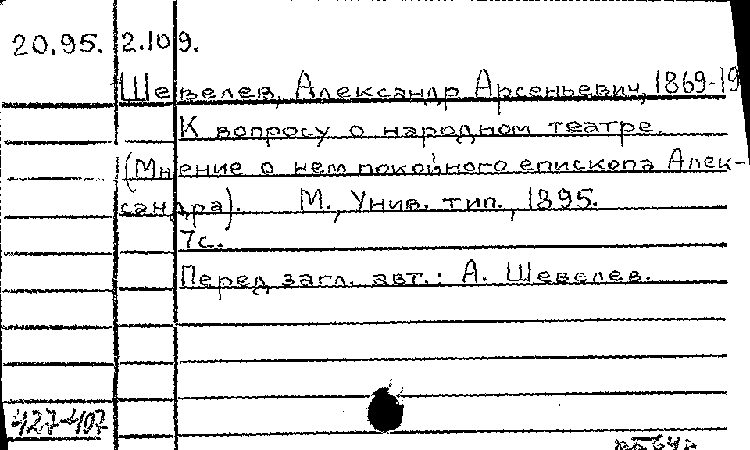 20.95. 2.109.
Шевелев, Александр Арсеньевич, 1869-19
К вопросу о народном театре.
(Мнение о нем покойного епископа Алек-
сандра). М., Унив. тип., 1895.
7с.
Перед загл. авт.: А. Шевелев.
427-407